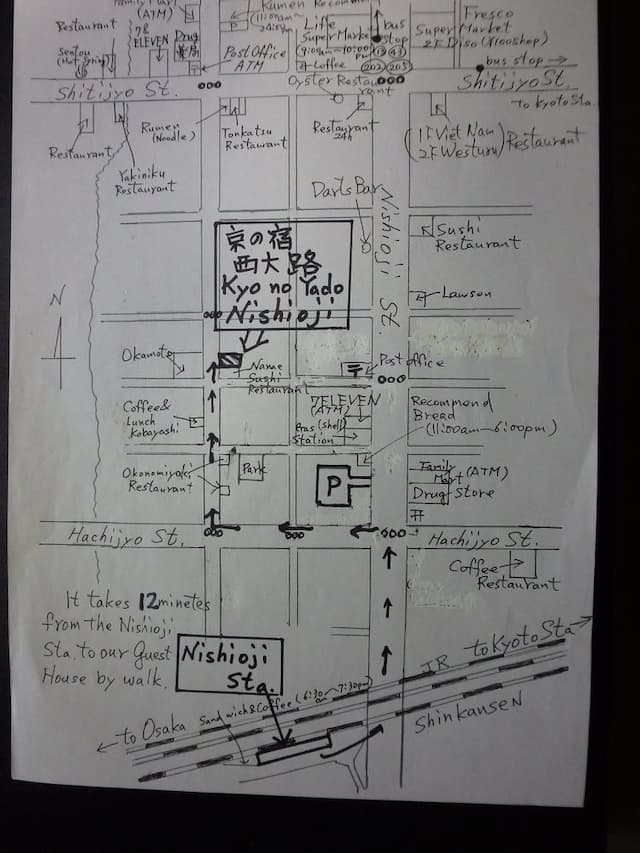 Restaurant
Family Mart
(ATM)
7&
ELEVEN
Drug
薬局
Post Office
ATM
Sentou
(Hot Spring)
Rumen Recomme
P
(11:00am~
24:00pm
Life
Super Market
(9:00am~10:00pm
Coffee
bus
stop
13 43
202 205
Fresco
Super
Market
2F Diso (¥100shop)
bus stop
Shitijyo St.
Shitijyo St.
to Kyoto Sta.
Oyster Restaurant
Restaurant
Yakiniku
Restaurant
Rumen
(Noodle)
Tonkatsu
Restaurant
Restaurant
24h
(1F Viet Nam
2F Westuru)
Restaurant
Darts Bar
Nishioji St.
Sushi
Restaurant
京の宿
西大路
Kyo no Yado
Nishioji
Lawson
N
Okamoto
Name
Sushi
Restaurant
〒
Post office
Coffee&
Lunch
Kobayashi
7ELEVEN
(ATM)
Gras (shell)
Station
Recommend
Bread
(11:00am~6:00pm)
Okonomiyaki
Restaurant
Park
P
Family
Mart (ATM)
Drug Store
Hachijyo St.
Hachijyo St.
Coffee
Restaurant
It takes 12minetes
from the Nishioji
Sta. to our Guest
House by walk.
Nishioji
Sta.
JR
to Kyoto Sta
Shinkansen
to Osaka
Sandwich&Coffee (6:30am~7:30pm)